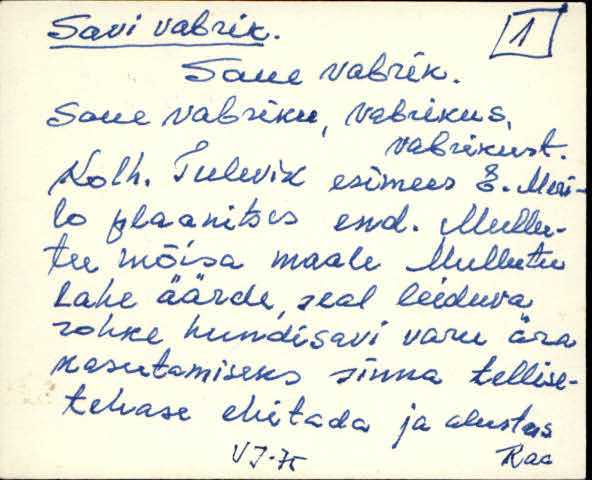 Savi vabrik. 1
Saue vabrik.
Saue vabriku, vabrikus,
vabrikust.
Kolh. Tulevik esimees E. Meri-
lo plaanitses end. Mullu-
tu mõisa maale Mullutu
Lahe äärde, seal leiduva
rohke hundisavi varu ära
kasutamiseks sinna tellise-
tehase ehitada ja alustas
VJ-75 Kaa